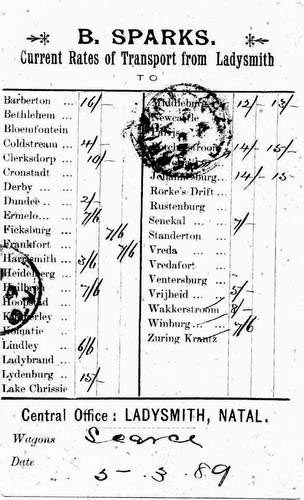 B. SPARKS.
Current Rates of Transport from Ladysmith
TO
Barberton ... 16/-
Bethlehem ...
Bloemfontein
Coldstream ... 4/-
Clerksdorp ... 10/-
Cronstadt ...
Derby ... ...
Dundee ... 2/-
Ermelo... ... 7/6
Ficksburg ... 7/6
Frankfort 7/6
Harrismith ... 3/6
Heidelberg ...
Heilbron ... 7/6
Hoopstad ...
Kimberley ...
Komatie ...
Lindley ... 6/6
Ladybrand ...
Lydenburg ... 15/-
Lake Chrissie
Middleburg ... 12/- 13/-
Newcastle
Potchefstroom 14/- 15/-
Johannesburg... 14/- 15
Rorke's Drift ...
Rustenburg ...
Senekal ... 7/-
Standerton ...
Vreda ... ...
Vredafort ...
Ventersburg ...
Vrijheid ... 5/-
Wakkerstroom 8/-
Winburg ... ... 7/6
Zuring Krantz
Central Office : LADYSMITH, NATAL.
Wagons Scarce
Date 5-3.89